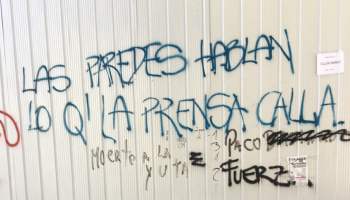 LAS PAREDES HABLAN
LO Q' LA PRENSA CALLA.
MUERTE A LA
YUTA
PACO
FUERZ